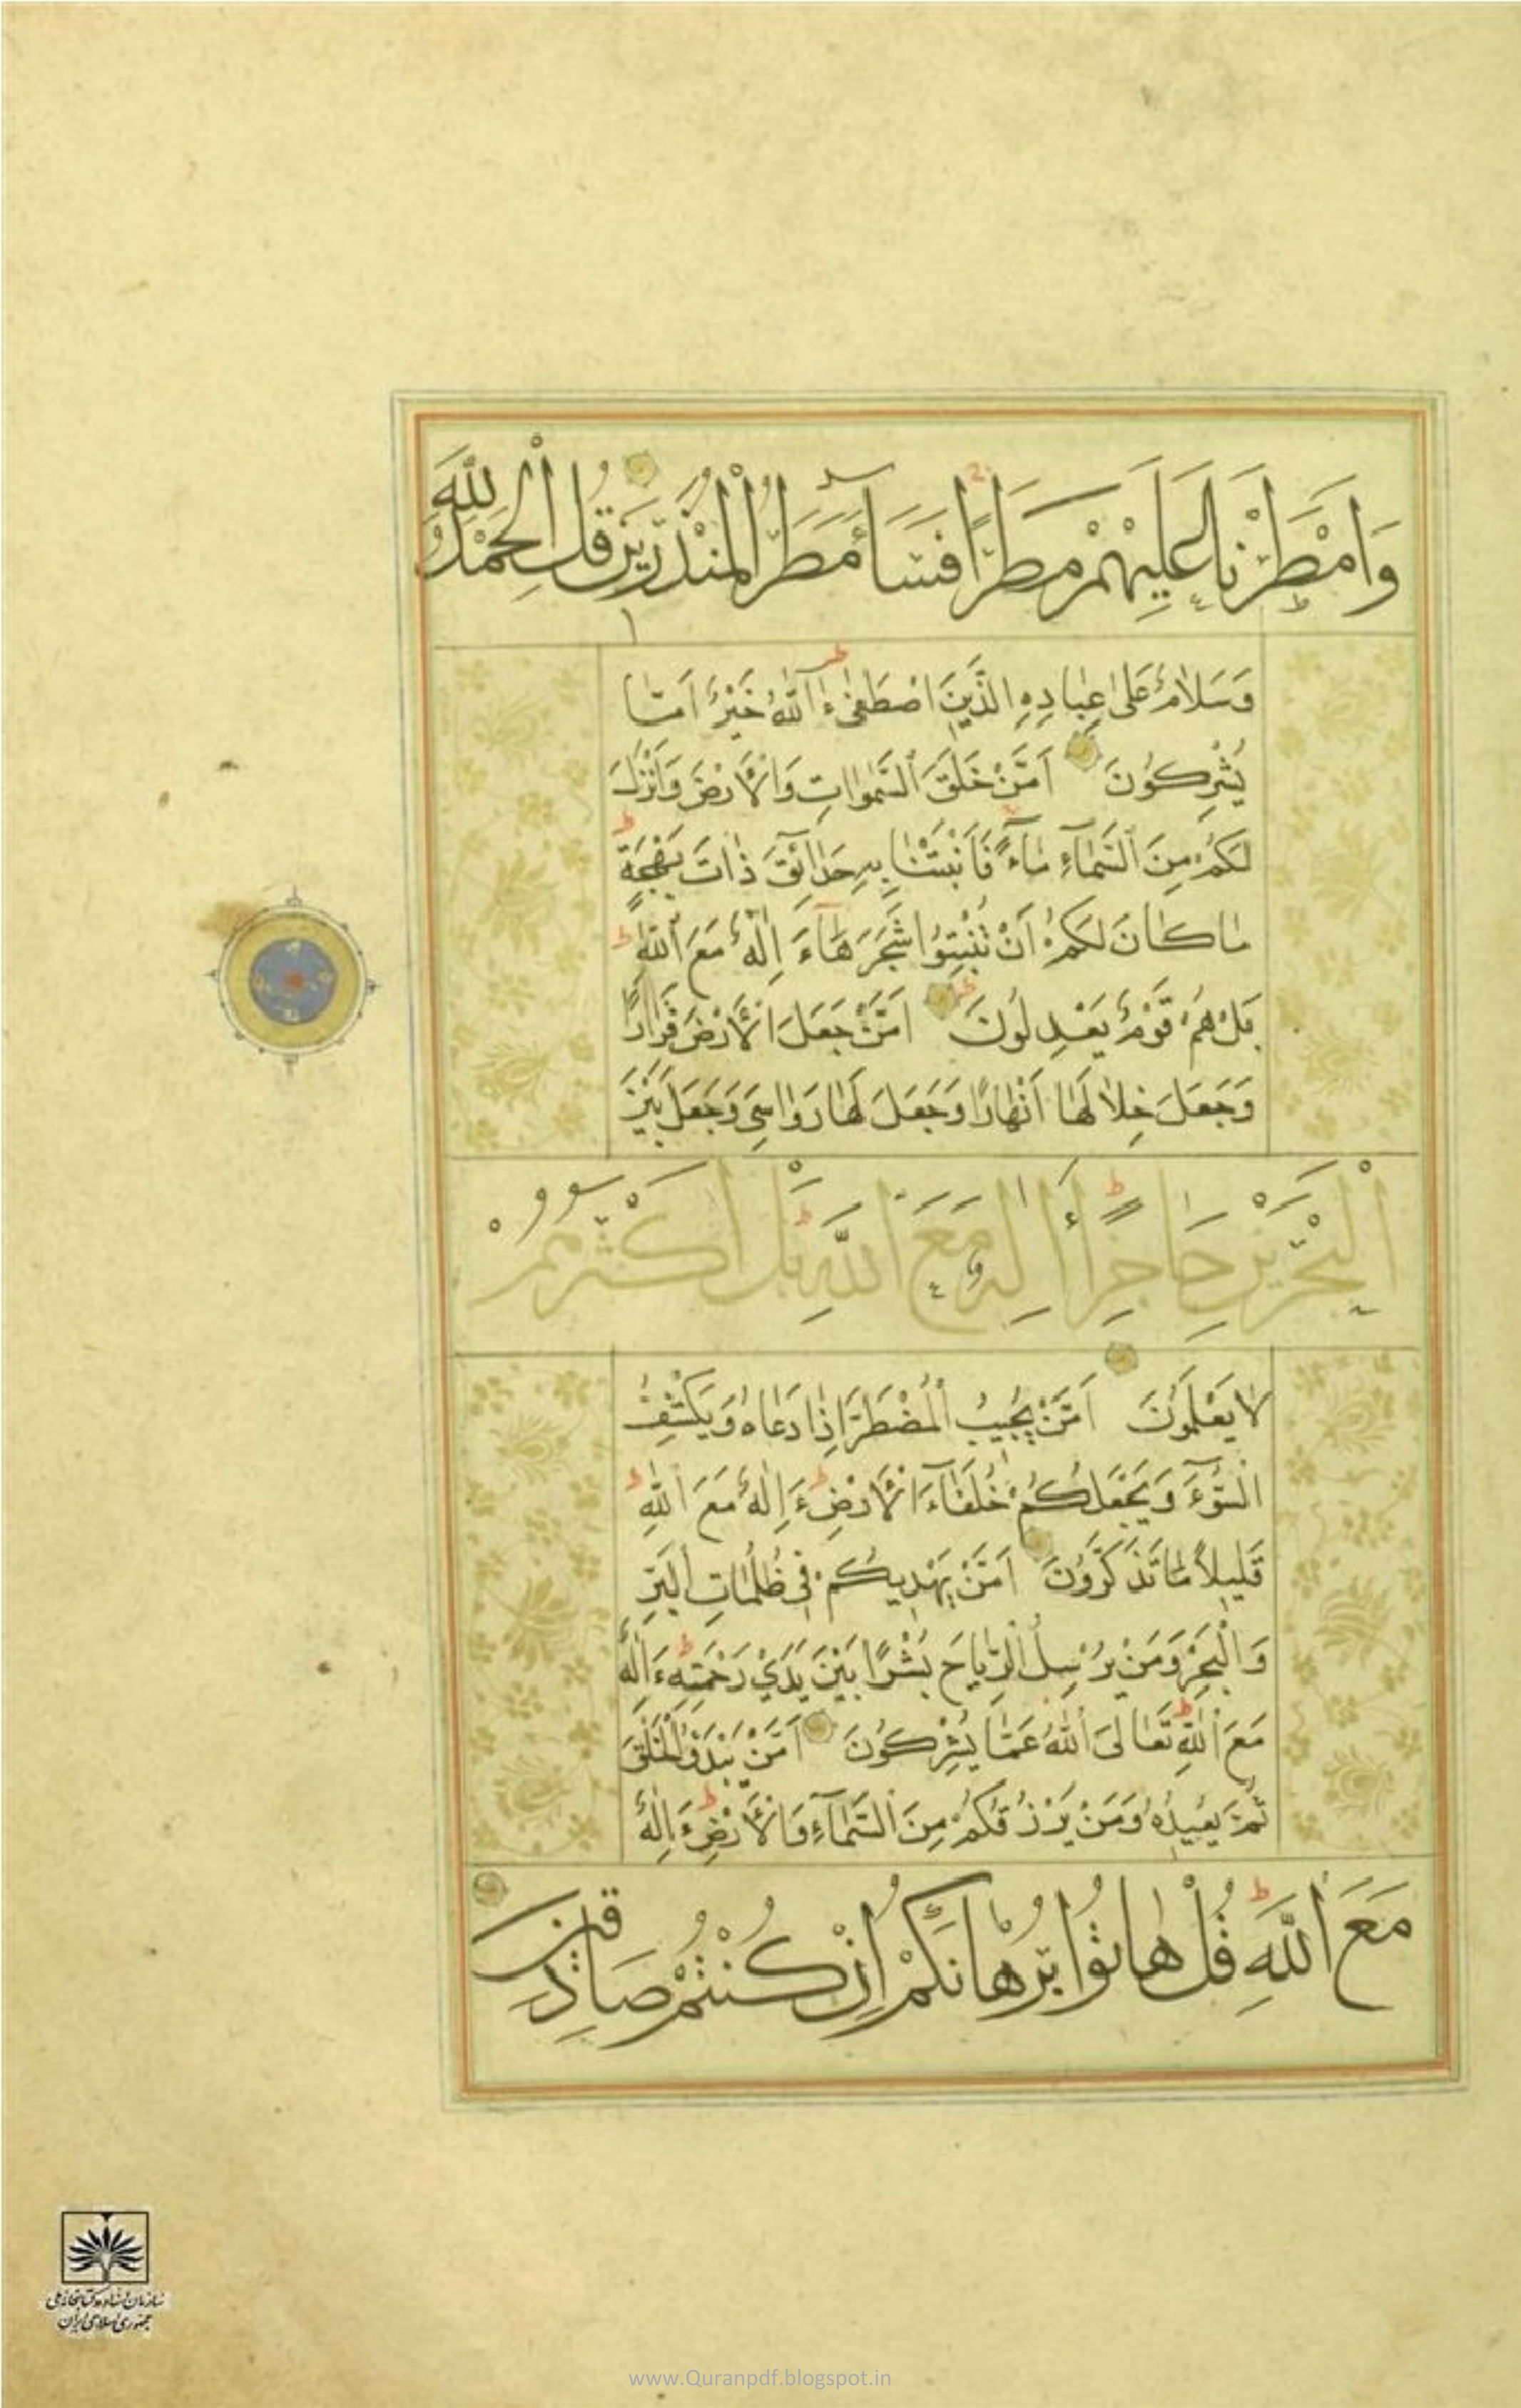 وَاَمْطَرْنَا عَلَيْهِمْ مَطَرًا فَسَآءَ مَطَرُ الْمُنْذَرِينَ قُلِ الْحَمْدُ لِلّٰهِ
وَسَلَامٌ عَلٰى عِبَادِهِ الَّذِينَ اصْطَفٰى ءٰٓاللّٰهُ خَيْرٌ اَمَّا
يُشْرِكُونَ اَمَّنْ خَلَقَ السَّمٰوَاتِ وَالْاَرْضَ وَاَنْزَلَ
لَكُمْ مِنَ السَّمَآءِ مَآءً فَاَنْبَتْنَا بِهِ حَدَآئِقَ ذَاتَ بَهْجَةٍ
مَا كَانَ لَكُمْ اَنْ تُنْبِتُوا شَجَرَهَا ءَاِلٰهٌ مَعَ اللّٰهِ
بَلْ هُمْ قَوْمٌ يَعْدِلُونَ اَمَّنْ جَعَلَ الْاَرْضَ قَرَارًا
وَجَعَلَ خِلَالَهَا اَنْهَارًا وَجَعَلَ لَهَا رَوَاسِيَ وَجَعَلَ بَيْنَ
الْبَحْرَيْنِ حَاجِزًا ءَاِلٰهٌ مَعَ اللّٰهِ بَلْ اَكْثَرُهُمْ
لَا يَعْلَمُونَ اَمَّنْ يُجِيبُ الْمُضْطَرَّ اِذَا دَعَاهُ وَيَكْشِفُ
السُّوٓءَ وَيَجْعَلُكُمْ خُلَفَآءَ الْاَرْضِ ءَاِلٰهٌ مَعَ اللّٰهِ
قَلِيلًا مَا تَذَكَّرُونَ اَمَّنْ يَهْدِيكُمْ فِي ظُلُمَاتِ الْبَرِّ
وَالْبَحْرِ وَمَنْ يُرْسِلُ الرِّيَاحَ بُشْرًا بَيْنَ يَدَيْ رَحْمَتِهِ ءَاِلٰهٌ
مَعَ اللّٰهِ تَعَالَى اللّٰهُ عَمَّا يُشْرِكُونَ اَمَّنْ يَبْدَؤُا الْخَلْقَ
ثُمَّ يُعِيدُهُ وَمَنْ يَرْزُقُكُمْ مِنَ السَّمَآءِ وَالْاَرْضِ ءَاِلٰهٌ
مَعَ اللّٰهِ قُلْ هَاتُوا بُرْهَانَكُمْ اِنْ كُنْتُمْ صَادِقِينَ
سازمان اسناد و کتابخانه ملی
جمهوری اسلامی ایران
www.Quranpdf.blogspot.in